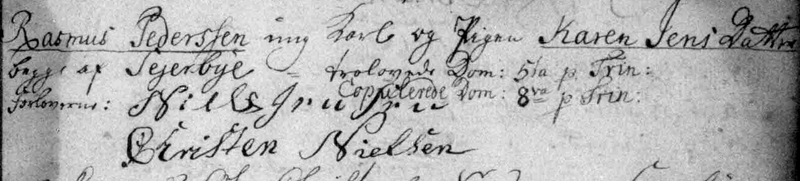 Rasmus Pederssen ung Karl og Pigen Karen Jens Datter
begge af Sejerbÿe = trolovede Dom: 5ta p. Trin:
Copulerede Dom: 8va p Trin:
forloverne: Niels Jensen
Christen Nielsen